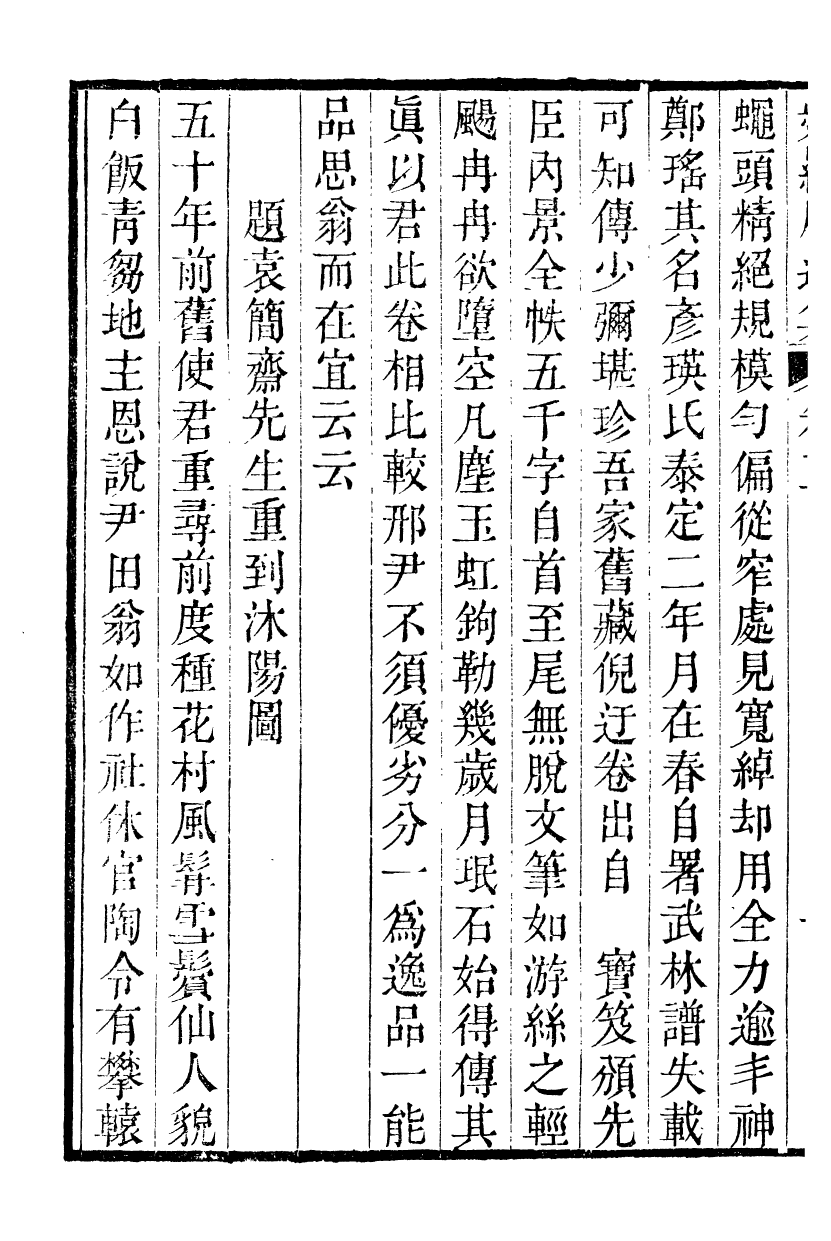 蠅頭精絕規模勻偏從窄處見寬綽却用全力逾丰神
鄭瑤其名彥瑛氏泰定二年月在春自署武林譜失載
可知傳少彌堪珍吾家舊藏倪迂卷出自　寶笈頒先
臣內景全帙五千字自首至尾無脫文筆如游絲之輕
颺冉冉欲墮空凡塵玉虹鉤勒幾歲月珉石始得傳其
眞以君此卷相比較邢尹不須優劣分一爲逸品一能
品思翁而在宜云云
題袁簡齋先生重到沐陽圖
五十年前舊使君重尋前度種花村風髯雪鬢仙人貌
白飯靑芻地主恩說尹田翁如作社休官陶令有攀轅